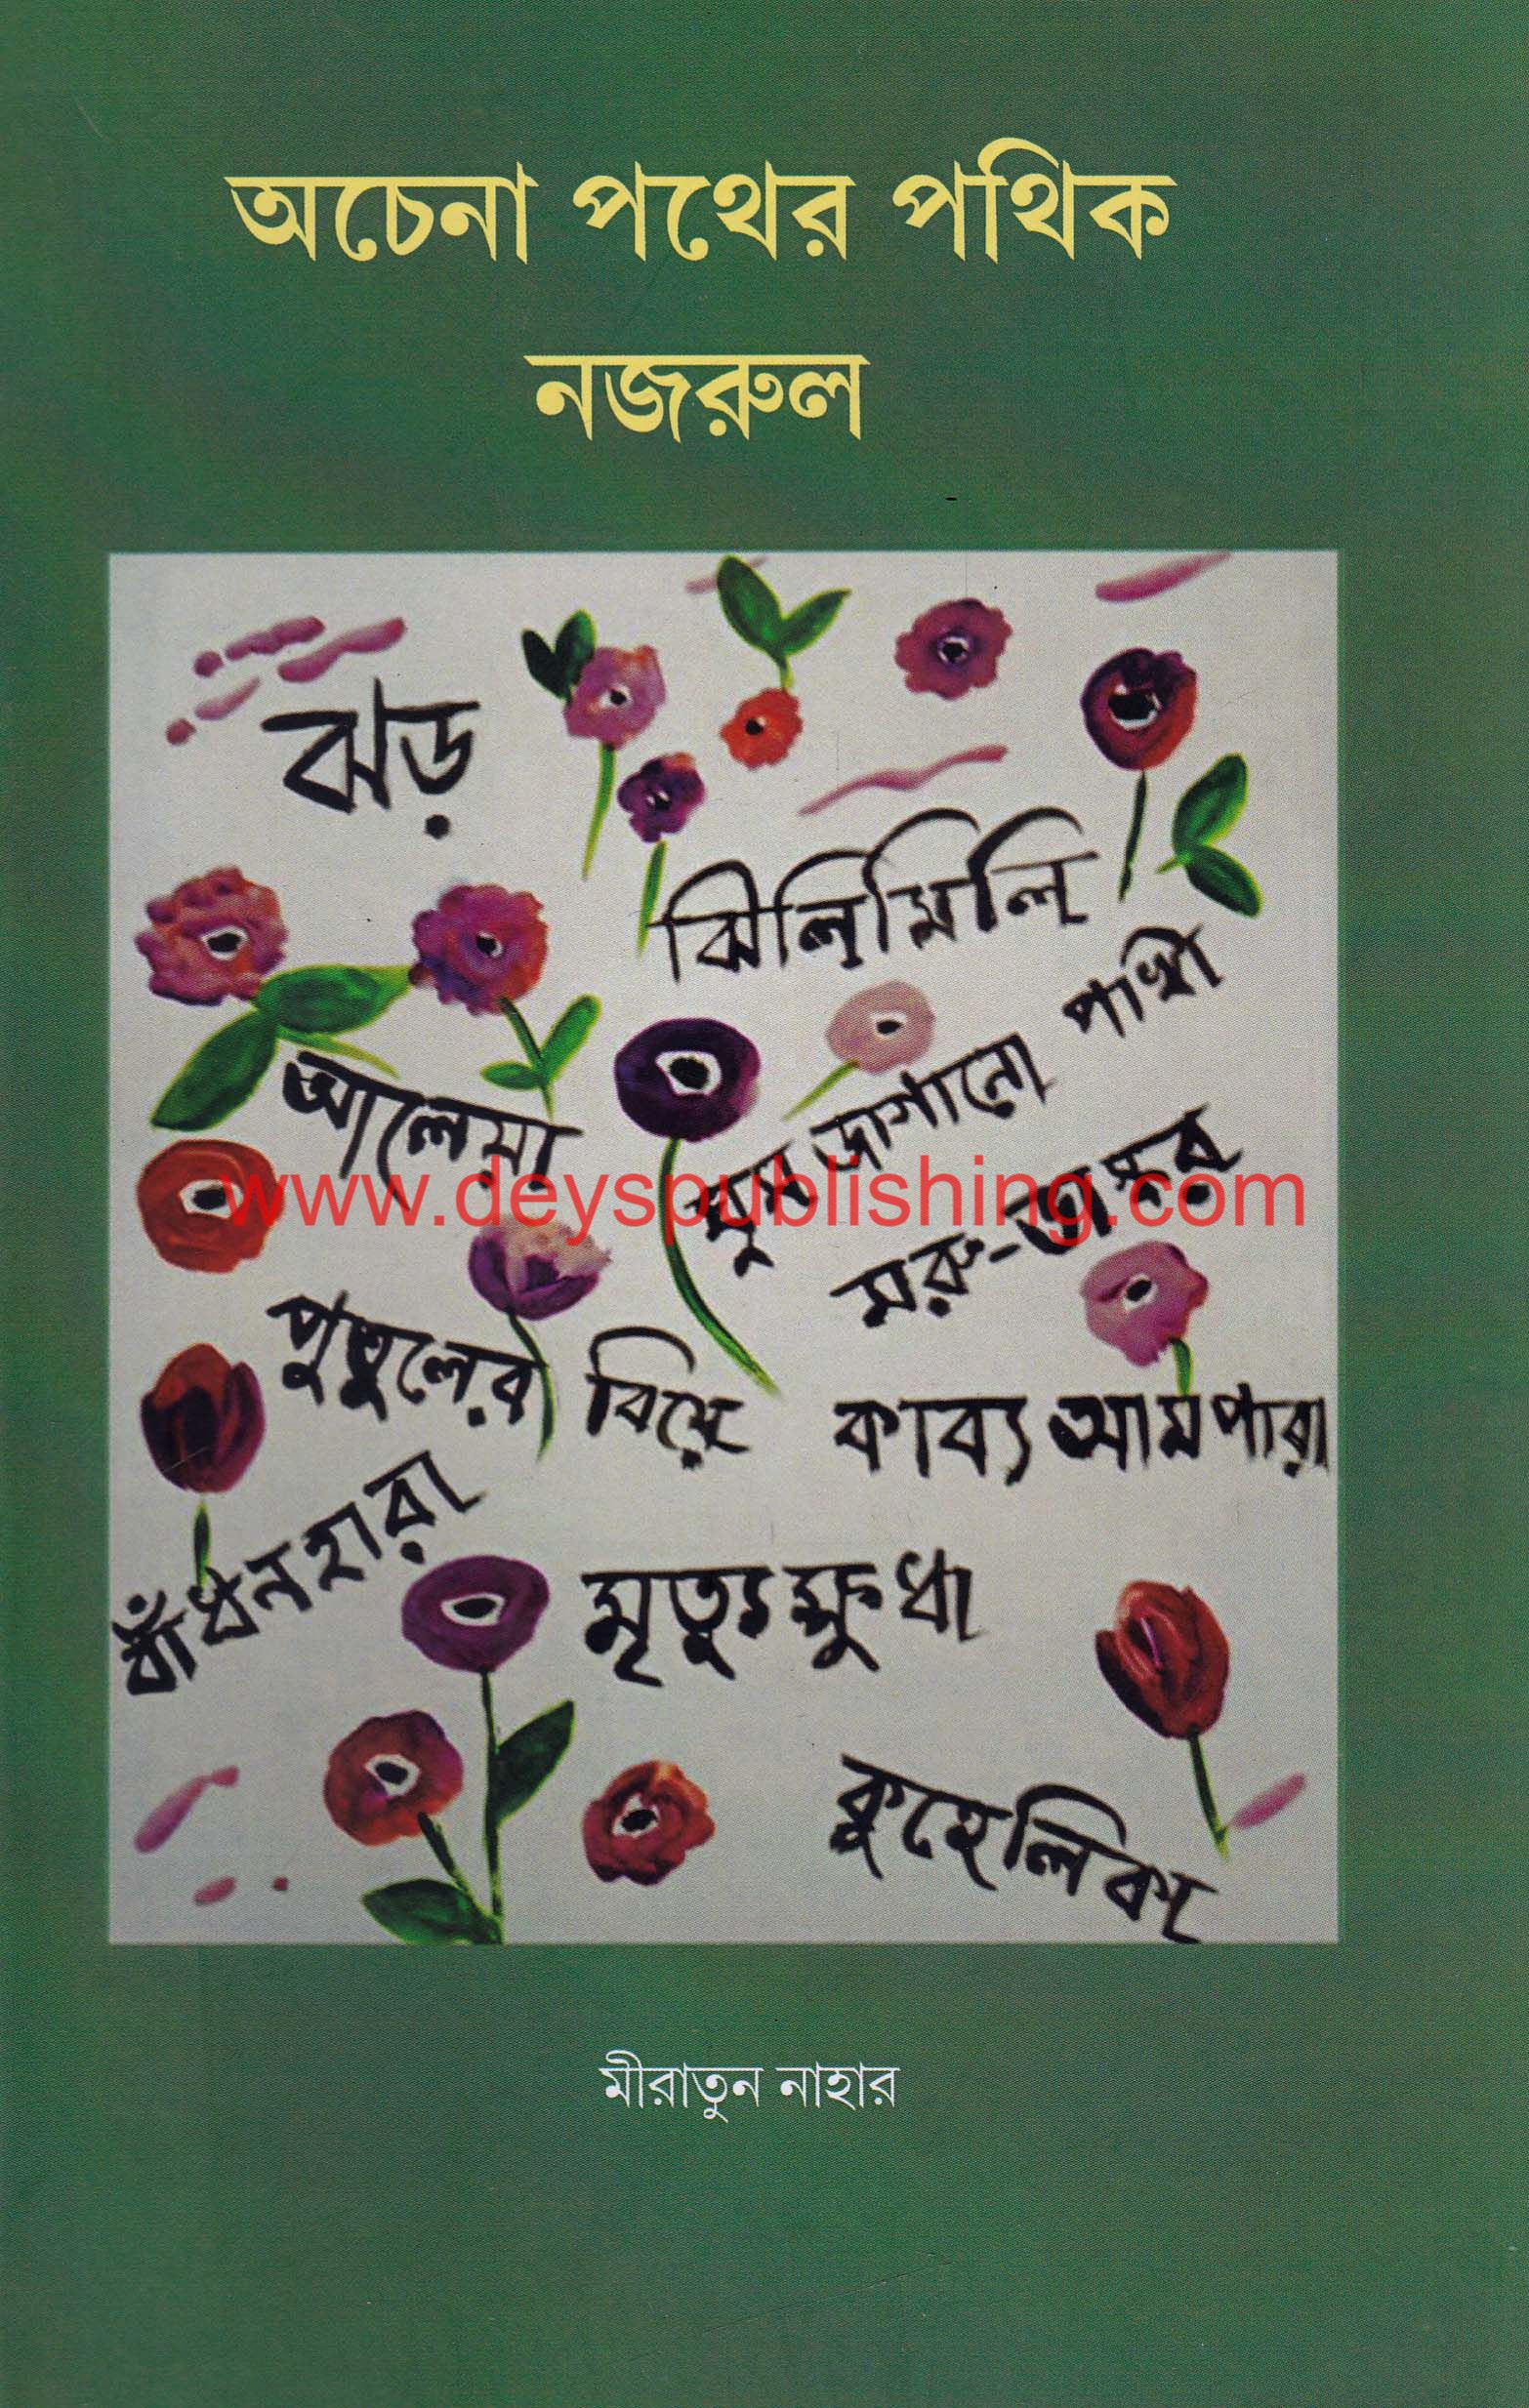 অচেনা পথের পথিক
নজরুল
ঝড়
ঝিলিমিলি
ঘুম জাগানো পাখী
আলেয়া
www.deyspublishing.com
মরু-ভাস্কর
পুতুলের বিয়ে
কাব্য আমপারা
বাঁধনহারা
মৃত্যুক্ষুধা
কুহেলিকা
মীরাতুন নাহার